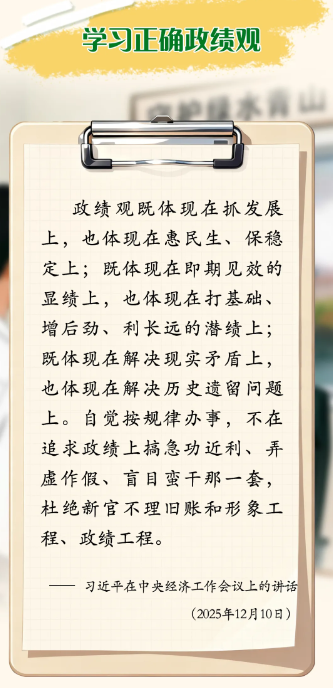 学习正确政绩观
守护绿水青山
政绩观既体现在抓发展
上，也体现在惠民生、保稳
定上；既体现在即期见效的
显绩上，也体现在打基础、
增后劲、利长远的潜绩上；
既体现在解决现实矛盾上，
也体现在解决历史遗留问题
上。自觉按规律办事，不在
追求政绩上搞急功近利、弄
虚作假、盲目蛮干那一套，
杜绝新官不理旧账和形象工
程、政绩工程。
—— 习近平在中央经济工作会议上的讲话
（2025年12月10日）